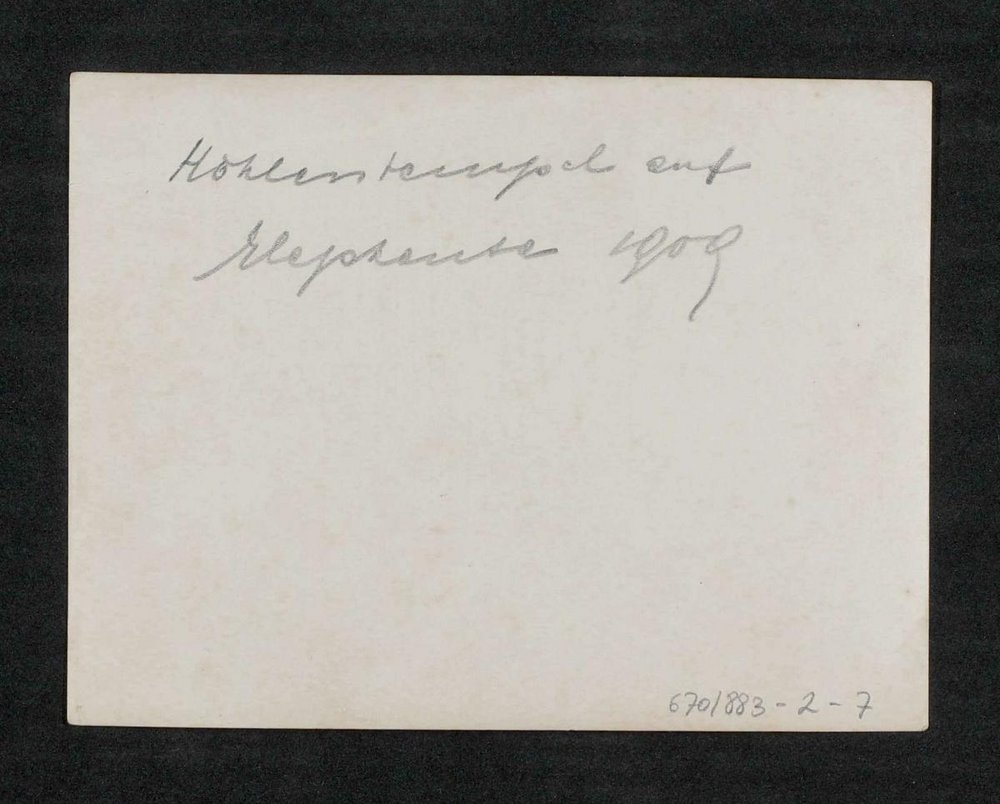 Höhlentempel auf
Elephanta 1909
670/883-2-7